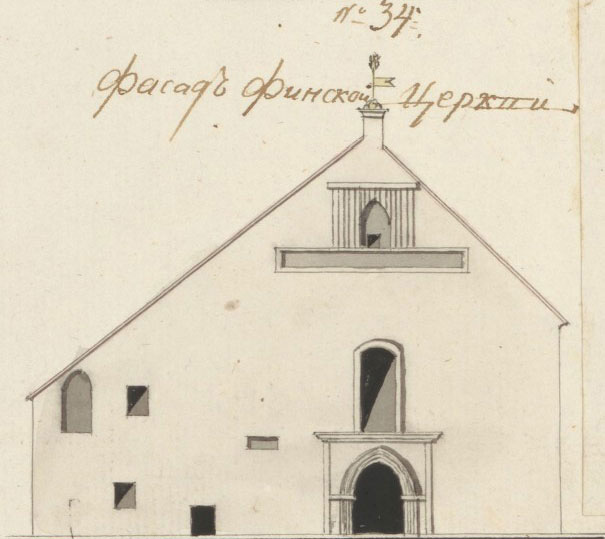 № 34.
Фасадъ Финской Церкви